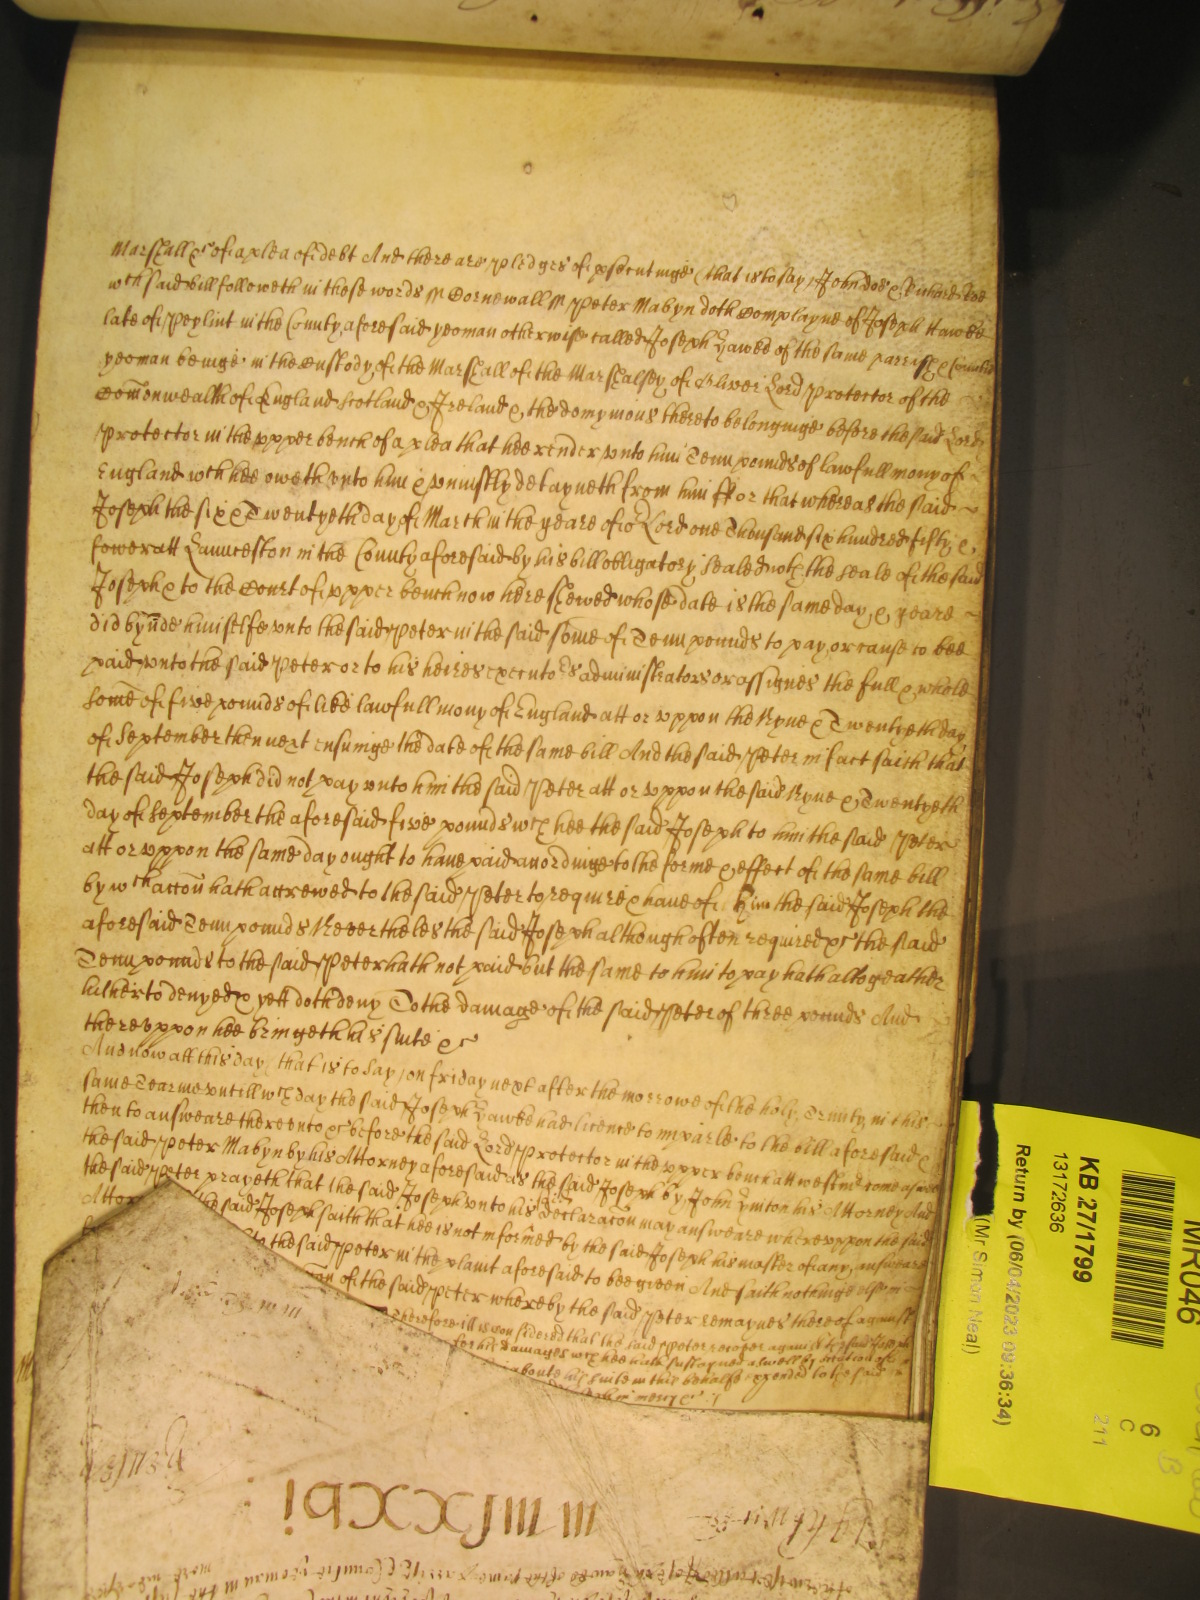 Marshall &c of a plea of debt And there are pledges of prosecutinge (that is to say) John Doe & Richard Roe
wch said bill followeth in these words ss Cornewall ss Peter Mabyn doth Complayne of Joseph Hawke
late of Peylint in the County aforesaid yeoman otherwise called Joseph Hawke of the same parrish & Countie
yeoman beinge in the Custody of the Marshall of the Marshalsey of Oliver Lord Protector of the
Comonwealth of England Scotland & Ireland & the domynions thereto belonginge before the said Lord
Protector in the upper bench of a plea that hee render unto him Tenn pounds of lawfull mony of
England wch hee oweth unto him & uniustly detayneth from him ffor that whereas the said
Joseph the six & Twentyeth day of March in the yeare of or Lord one Thousand six hundred fifty &
fower att Launceston in the County aforesaid by his bill obligatory sealed wth the seale of the said
Joseph & to the Court of upper bench now here shewed whose date is the same day & yeare
did bynde himselfe unto the said Peter in the said some of Tenn pounds to pay or cause to bee
paid unto the said Peter or to his heires executors administrators or assignes the full & whole
some of five pounds of like lawfull mony of England att or uppon the Nyne & Twentyeth day
of September then next ensuinge the date of the same bill And the said Peter in fact saith that
the said Joseph did not pay unto him the said Peter att or uppon the said Nyne & Twentyeth
day of September the aforesaid five pounds wch hee the said Joseph to him the said Peter
att or uppon the same day ought to have paid accordinge to the forme & effect of the same bill
by wch accon hath accrewed to the said Peter to require & have of him the said Joseph the
aforesaid Tenn pounds Nevertheles the said Joseph although often required &c the said
Tenn pounds to the said Peter hath not paid but the same to him to pay hath altogeather
hitherto denyed & yett doth deny To the damage of the said Peter of three pounds And
thereuppon hee bringeth his suite &c
And now att this day (that is to say) on friday next after the morrowe of the holy Trinity in this
same Tearme untill wch day the said Joseph Hawke had licence to imparle to the bill aforesaid &
then to answeare thereunto &c before the said Lord Protector in the upper bench att westmr come aswell
the said Peter Mabyn by his Attorney aforesaid as the said Joseph by John Lynton his Attorney And
the said Peter prayeth that the said Joseph unto his declaracon may answeare whereuppon the said
Attor the said Joseph saith that hee is not informed by the said Joseph his master of any answeare
to the said Peter in the plaint aforesaid to bee given And saith nothinge else in
of the said Peter whereby the said Peter remaynes thereof against
Therefore it is considered that the said Peter recover against the said Joseph
for his damages wch hee hath sustayned aswell by occation of
aboute his suite in this behalfe expended to the said
in mercy &c
MR046
KB 27/1799
13172636
Return by (06/04/2023 09:36:34)
(Mr Simon Neal)
6
C
211